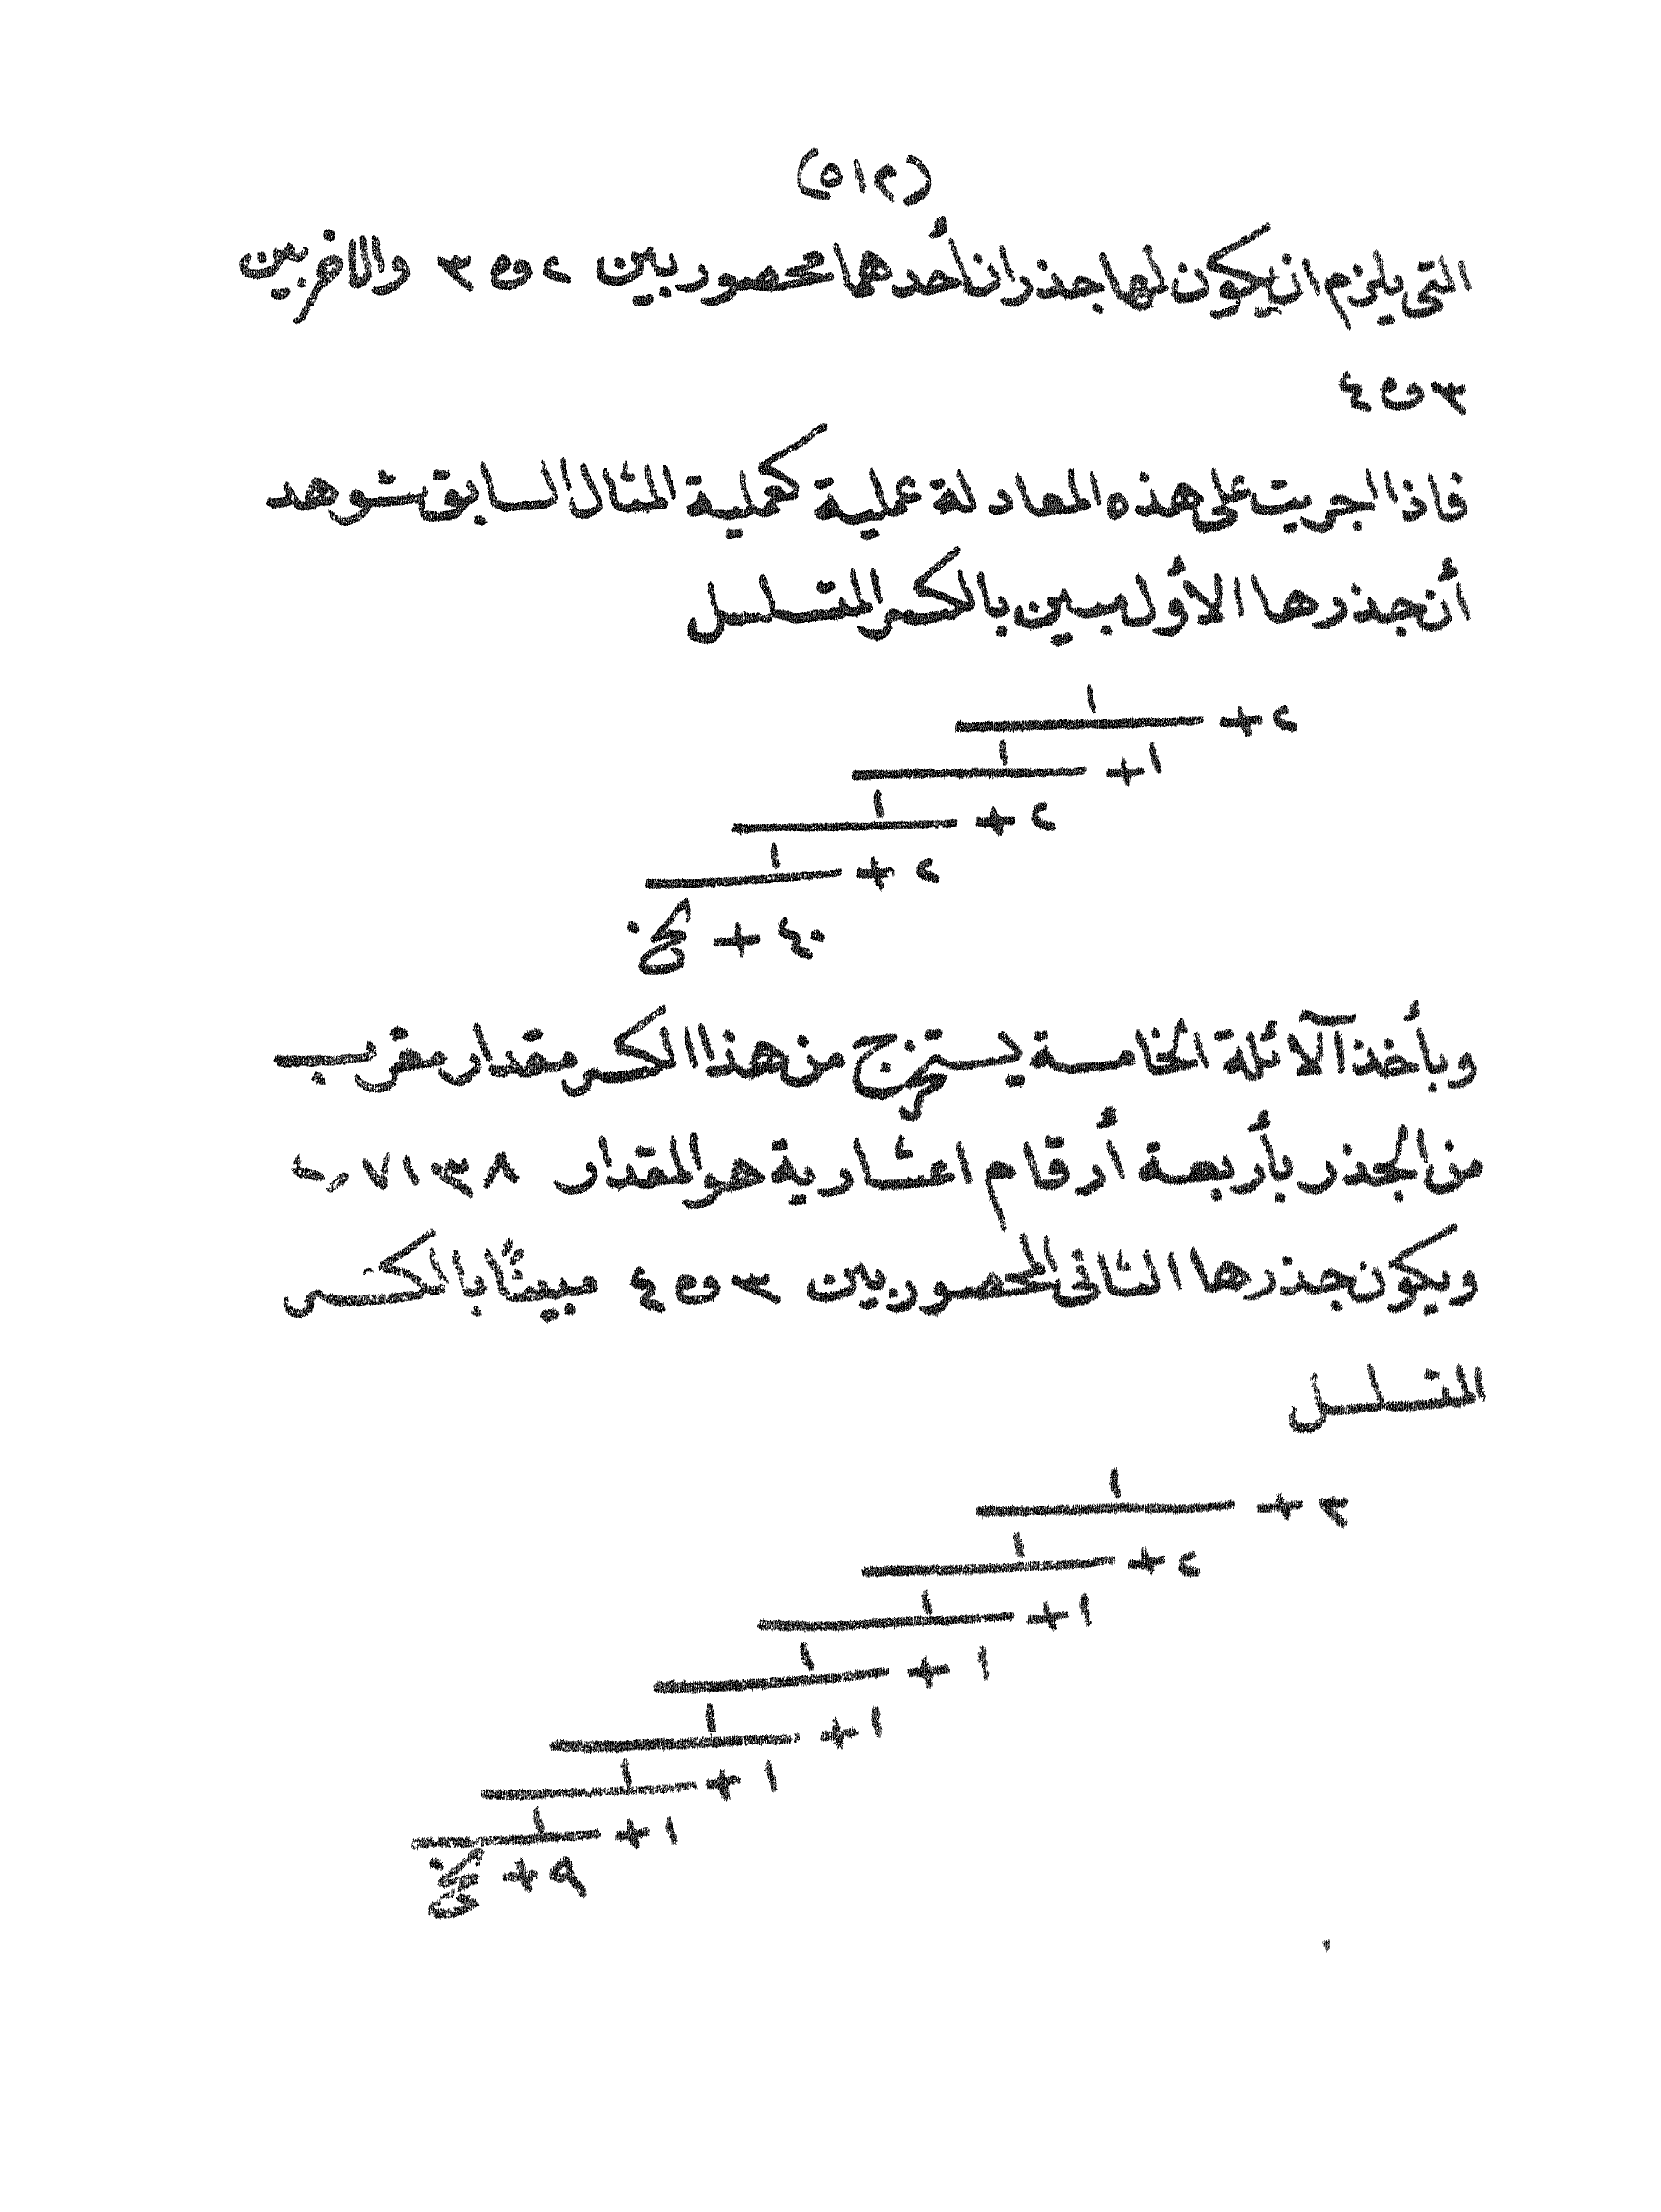 (٥١٢)
التى يلزم ان يكون لها جذران أحدهما محصور بين ٢ و ٣ والاخر بين
٣ و ٤
فاذا اجريت على هذه المعادلة عملية كعملية المثال السابق شوهد
أن جذرها الأول مبين بالكسر المتسلسل
٢ + ١
١ + ١
٢ + ١
٢ + ١
٤٠ + الخ
وبأخذ آلائلة الخامسة يستخرج من هذا الكسر مقدار مقرب
من الجذر بأربعة أرقام اعشارية هو المقدار ٢٫٧١٣٨
ويكون جذرها الثانى المحصور بين ٣ و ٤ مبينًا بالكسر
المتسلسل
٣ + ١
٢ + ١
١ + ١
١ + ١
١ + ١
١ + ١
١ + ١
٩ + الخ